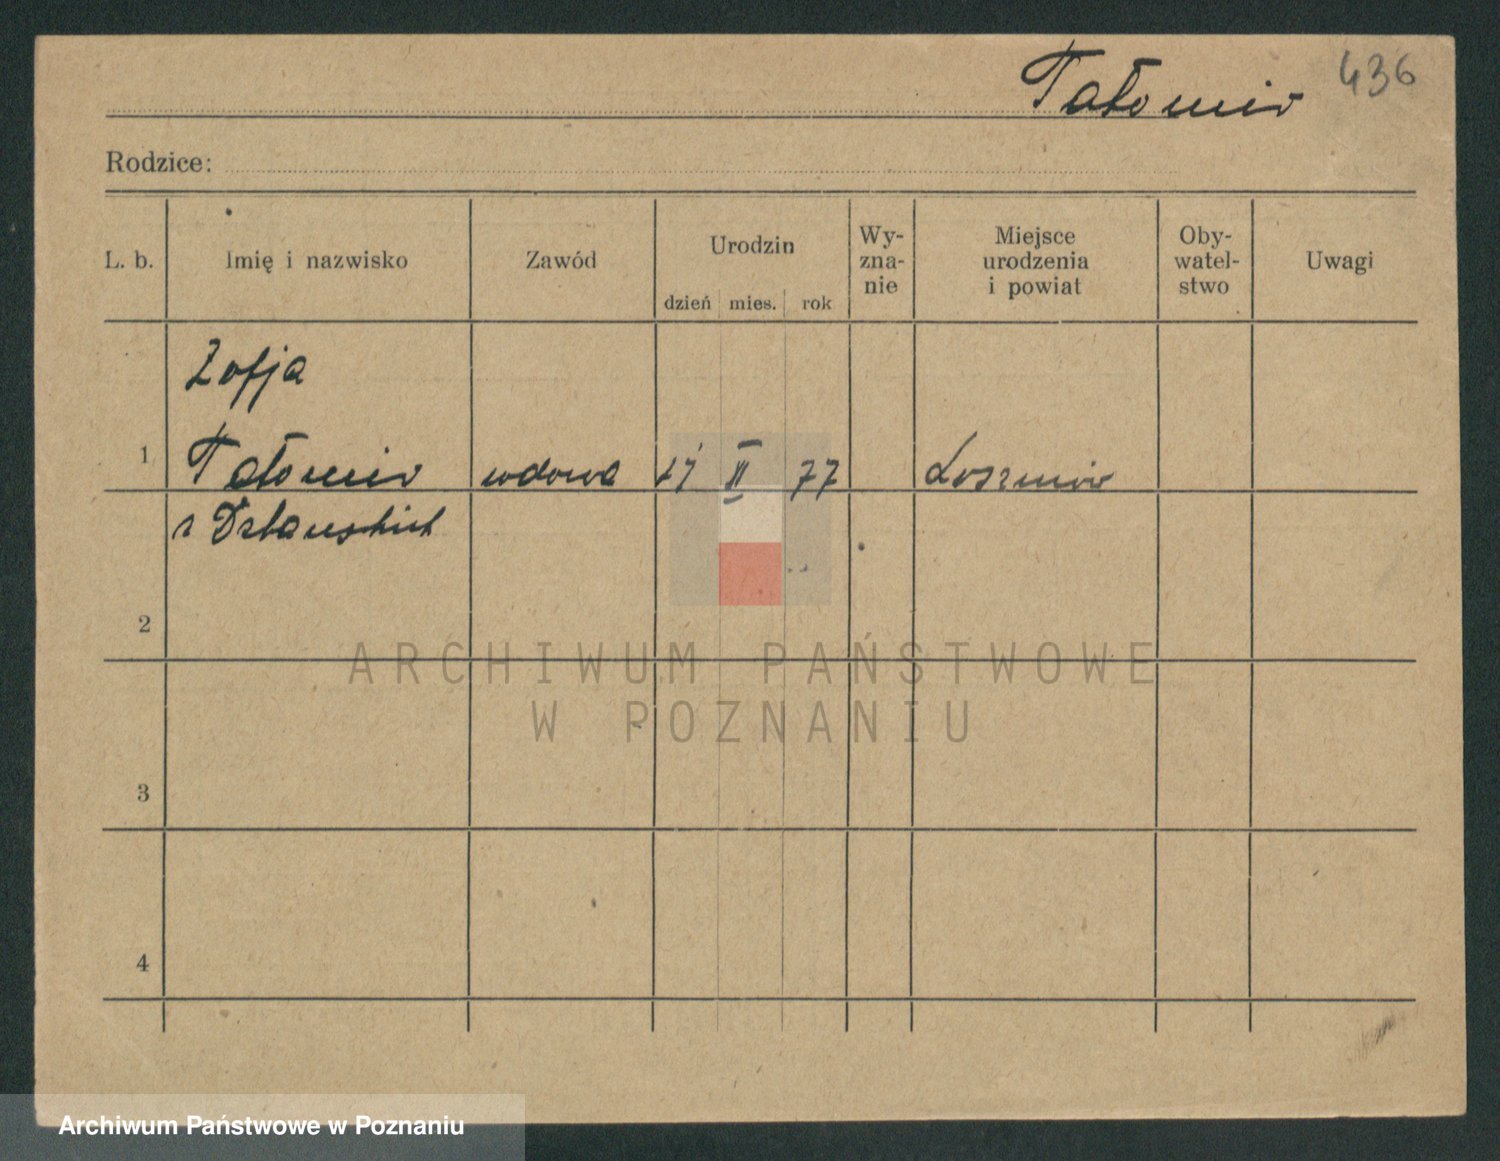 Tatomir 436
Rodzice:
L. b. Imię i nazwisko Zawód Urodzin dzień mies. rok Wy-zna-nie Miejsce urodzenia i powiat Oby-watel-stwo Uwagi
Zofja
1 Tatomir wdowa II 77
z
2
3
4
ARCHIWUM PAŃSTWOWE
W POZNANIU
Archiwum Państwowe w Poznaniu